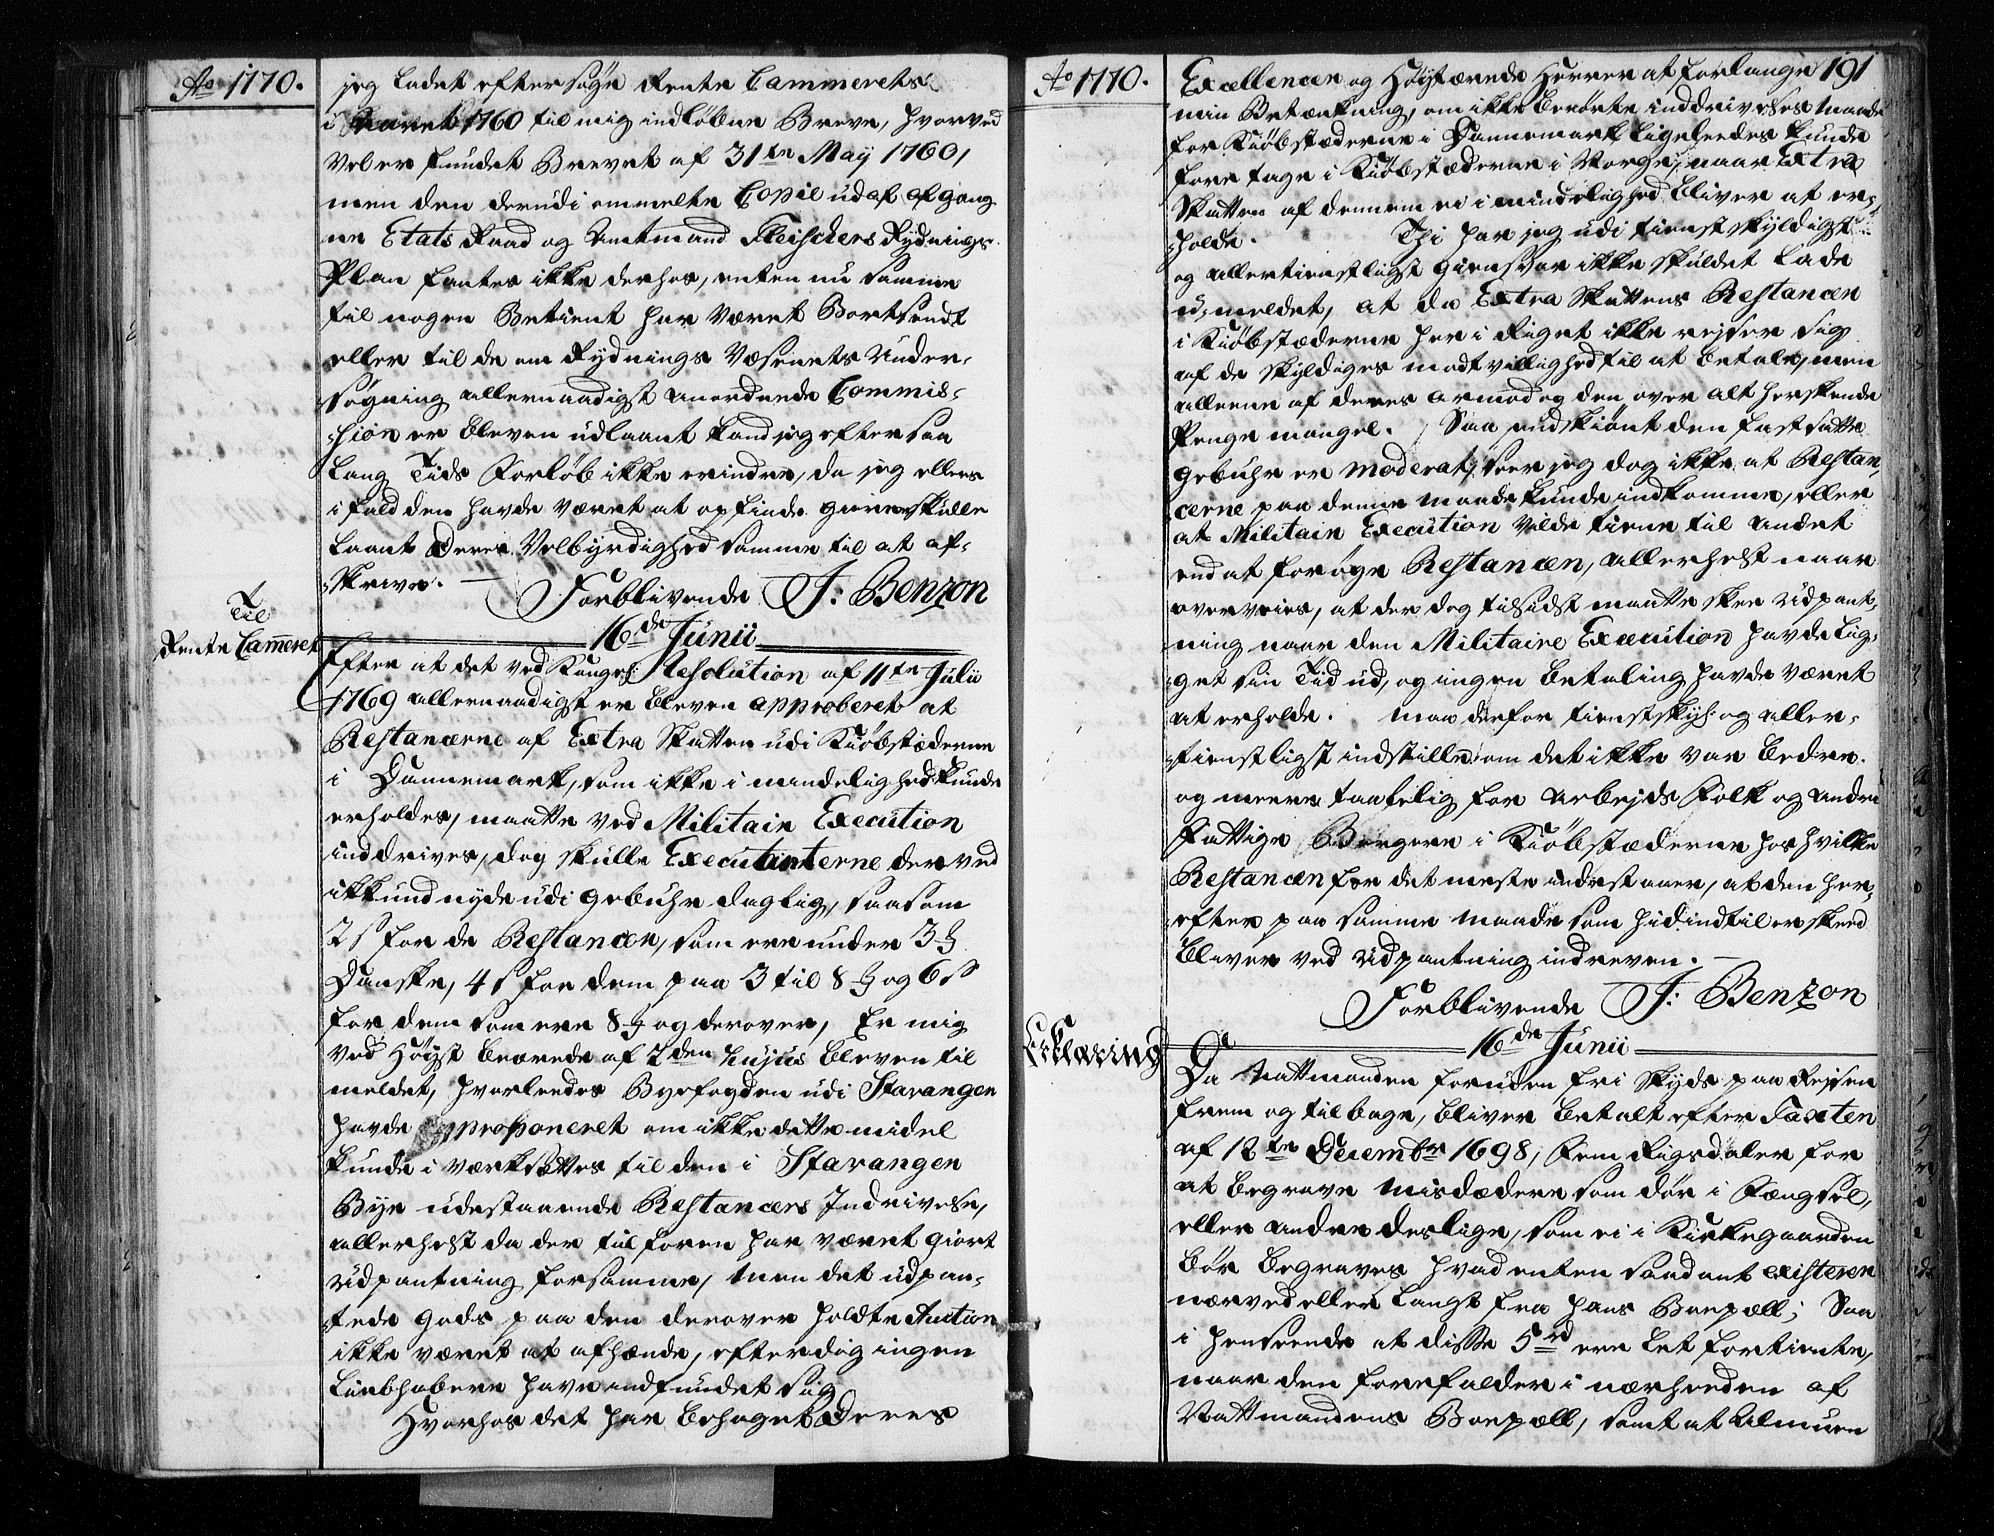 Ao 1770.
jeg ladet eftersøge Rente Cammerets
i Aaret 1760 til mig indløbne Breve, hvorved
vel er fundet Brevet af 31te May 1760,
men den derudi ommelte Copie ud af afgang-
ne Etats Raad og Amtmand Fleischers Rydnings-
Plan fantes ikke derhos, enten nu samme
til nogen Betient har været Bortsendt
eller til de om Rydnings Væsenets Under-
søgning allernaadigst anordnede Commis-
sion er bleven udlaant kand jeg efter saa
lang Tids Forløb ikke erindre, da jeg ellers
ifald den havde været at opfinde gierne skulle
laant Deres Velbyrdighed samme til at af-
skrive.
Forblivende J: Benzon
16de Junii
Til
Rente Cam̄eret
Efter at det ved Kongel: Resolution af 11te Julii
1769 allernaadigst er bleven approberet at
Restancerne af Extra Skatten udi Kiøbstæderne
i Dannemark, som ikke i mindelighed kunde
erholdes, maatte ved Militair Execution
inddrives, dog skulle Executanterne derved
ikkund nyde udi gebuhr daglig, saasom
2 s for de Restancer, som ere under 3
Danske, 4 s for dem paa 3 til 8 og 6 s
for dem som ere 8 og derover, Er mig
ved Høyst beærede af 2den hujus bleven til
meldet, hvorleedes Byefogden udi Stavanger
havde proponeret om ikke dette middel
kunde i værksættes til den i Stavanger
Bye udestaaende Restancers Indrivelse,
allerhelst da der tilforen har været giort
udpantning for samme, men det udpan-
tede gods paa den derover holdte Auction
ikke været at afhænde, efterdi ingen
Liebhabere have indfundet sig
Hvorhos det har behaget Deres
Ao 1770.
191
Excellencer og Høystærede Herrer at forlange
min Betænkning, om ikke berørte inddrivelses maade
for Kiøbstæderne i Dannemark ligeleedes kunde
foretage i Kiøbstæderne i Norge, naar Extra
Skatten af dennem ei i mindelighed bliver at er-
holde. Thi har jeg udi tienstskyldigst
og allertienstligst giensvar ikke skuldet lade
u-meldet, at da Extra Skattens Restancer
i Kiøbstæderne her i Riget ikke rejser sig
af de skyldiges modtvillighed til at betale, men
alleene af deres armod og den over alt herskende
Penge mangel. Saa endskiønt den fastsatte
gebuhr er moderat, seer jeg dog ikke at Restan-
cerne paa denne maade kunde indkomme, eller
at Militair Execution vilde tiene til andet
end at forøge Restancen, allerhelst naar
overveies, at der dog tilsidst maatte skee udpant-
ning naar den Militaire Execution havde lig-
get sin Tid ud, og ingen betaling havde været
at erholde. maa derfor tienstskyl: og aller-
tienstligst indstille om det ikke var bedre
og meere taalelig for Arbejds Folk og andre
Fattige Borgere i Kiøbstæderne hos hvilke
Restancen for det meste indestaaer, at den her-
efter paa samme maade som hidindtil er skeed
bliver ved udpantning indreven.
Forblivende J: Benzon
16de Junii
Erklæring
Da Natmanden foruden fri Skyds paa Rejsen
frem og tilbage, bliver betalt efter Taxten
af 12te Decembr 1698, Fem Rigsdaler for
at begrave misdædere som dør i Fængsel,
eller andre deslige, som ei i Kirkegaarden
bør begraves hvad enten saadant existerer
nærved eller langt fra hans Boepæll; Saa
i henseende at disse 5 rd ere let fortiente,
naar den forefalder i nærheeden af
Natmandens Boepæll, samt at Almuen